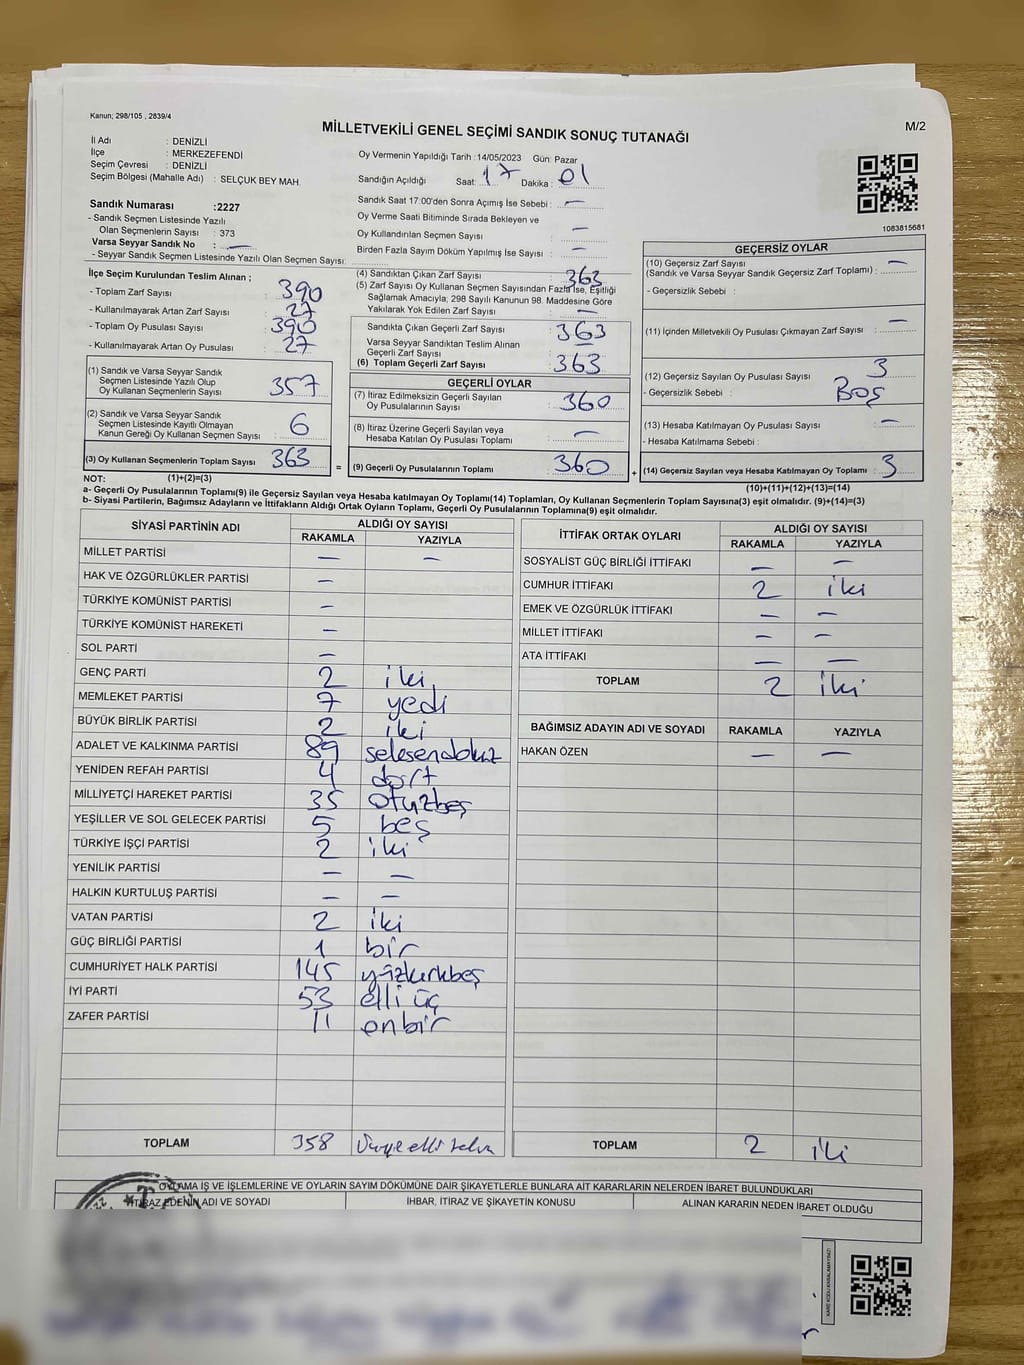 Kanun; 298/105 , 2839/4
MİLLETVEKİLİ GENEL SEÇİMİ SANDIK SONUÇ TUTANAĞI
M/2
İl Adı : DENİZLİ
İlçe : MERKEZEFENDİ
Seçim Çevresi : DENİZLİ
Seçim Bölgesi (Mahalle Adı) : SELÇUK BEY MAH.
Oy Vermenin Yapıldığı Tarih : 14/05/2023 Gün: Pazar
Sandığın Açıldığı Saat: 17 Dakika : 01
Sandık Saat 17:00'den Sonra Açımış İse Sebebi : —
Oy Verme Saati Bitiminde Sırada Bekleyen ve
Oy Kullandırılan Seçmen Sayısı —
Birden Fazla Sayım Döküm Yapılmış İse Sayısı : —
1083815681
Sandık Numarası :2227
- Sandık Seçmen Listesinde Yazılı
Olan Seçmenlerin Sayısı : 373
Varsa Seyyar Sandık No : —
- Seyyar Sandık Seçmen Listesinde Yazılı Olan Seçmen Sayısı:
İlçe Seçim Kurulundan Teslim Alınan ;
- Toplam Zarf Sayısı : 390
- Kullanılmayarak Artan Zarf Sayısı : 27
- Toplam Oy Pusulası Sayısı : 390
- Kullanılmayarak Artan Oy Pusulası : 27
(1) Sandık ve Varsa Seyyar Sandık
Seçmen Listesinde Yazılı Olup
Oy Kullanan Seçmenlerin Sayısı : 357
(2) Sandık ve Varsa Seyyar Sandık
Seçmen Listesinde Kayıtlı Olmayan
Kanun Gereği Oy Kullanan Seçmen Sayısı : 6
(3) Oy Kullanan Seçmenlerin Toplam Sayısı : 363
(4) Sandıktan Çıkan Zarf Sayısı : 363
(5) Zarf Sayısı Oy Kullanan Seçmen Sayısından Fazla İse, Eşitliği
Sağlamak Amacıyla; 298 Sayılı Kanunun 98. Maddesine Göre
Yakılarak Yok Edilen Zarf Sayısı : —
Sandıkta Çıkan Geçerli Zarf Sayısı : 363
Varsa Seyyar Sandıktan Teslim Alınan
Geçerli Zarf Sayısı : —
(6) Toplam Geçerli Zarf Sayısı : 363
GEÇERLİ OYLAR
(7) İtiraz Edilmeksizin Geçerli Sayılan
Oy Pusulalarının Sayısı : 360
(8) İtiraz Üzerine Geçerli Sayılan veya
Hesaba Katılan Oy Pusulası Toplamı : —
= (9) Geçerli Oy Pusulalarının Toplamı : 360 +
GEÇERSİZ OYLAR
(10) Geçersiz Zarf Sayısı
(Sandık ve Varsa Seyyar Sandık Geçersiz Zarf Toplamı) : —
- Geçersizlik Sebebi :
(11) İçinden Milletvekili Oy Pusulası Çıkmayan Zarf Sayısı : —
(12) Geçersiz Sayılan Oy Pusulası Sayısı : 3
- Geçersizlik Sebebi : Boş
(13) Hesaba Katılmayan Oy Pusulası Sayısı : —
- Hesaba Katılmama Sebebi :
(14) Geçersiz Sayılan veya Hesaba Katılmayan Oy Pusulası Toplamı : 3
NOT: (1)+(2)=(3)
(10)+(11)+(12)+(13)=(14)
a- Geçerli Oy Pusulasının Toplamı(9) ile Geçersiz Sayılan veya Hesaba katılmayan Oy Toplamı(14) Toplamları, Oy Kullanan Seçmenlerin Toplam Sayısına(3) eşit olmalıdır. (9)+(14)=(3)
b- Siyasi Partilerin, Bağımsız Adayların ve İttifakların Aldığı Ortak Oyların Toplamı, Geçerli Oy Pusulalarının Toplamına(9) eşit olmalıdır.
SİYASİ PARTİNİN ADI ALDIĞI OY SAYISI
RAKAMLA YAZIYLA
MİLLET PARTİSİ — —
HAK VE ÖZGÜRLÜKLER PARTİSİ —
TÜRKİYE KOMÜNİST PARTİSİ —
TÜRKİYE KOMÜNİST HAREKETİ —
SOL PARTİ —
GENÇ PARTİ 2 iki
MEMLEKET PARTİSİ 7 yedi
BÜYÜK BİRLİK PARTİSİ 2 iki
ADALET VE KALKINMA PARTİSİ 89 seksendokuz
YENİDEN REFAH PARTİSİ 4 dört
MİLLİYETÇİ HAREKET PARTİSİ 35 otuzbeş
YEŞİLLER VE SOL GELECEK PARTİSİ 5 beş
TÜRKİYE İŞÇİ PARTİSİ 2 iki
YENİLİK PARTİSİ — —
HALKIN KURTULUŞ PARTİSİ — —
VATAN PARTİSİ 2 iki
GÜÇ BİRLİĞİ PARTİSİ 1 bir
CUMHURİYET HALK PARTİSİ 145 yüzkırkbeş
İYİ PARTİ 53 elli üç
ZAFER PARTİSİ 11 onbir
TOPLAM 358 üçyüz elli sekiz
İTTİFAK ORTAK OYLARI ALDIĞI OY SAYISI
RAKAMLA YAZIYLA
SOSYALİST GÜÇ BİRLİĞİ İTTİFAKI — —
CUMHUR İTTİFAKI 2 iki
EMEK VE ÖZGÜRLÜK İTTİFAKI — —
MİLLET İTTİFAKI — —
ATA İTTİFAKI — —
TOPLAM 2 iki
BAĞIMSIZ ADAYIN ADI VE SOYADI RAKAMLA YAZIYLA
HAKAN ÖZEN — —
TOPLAM 2 iki
OYLAMA İŞ VE İŞLEMLERİNE VE OYLARIN SAYIM DÖKÜMÜNE DAİR ŞİKAYETLERLE BUNLARA AİT KARARLARIN NELERDEN İBARET BULUNDUKLARI
İTİRAZ EDENİN ADI VE SOYADI İHBAR, İTİRAZ VE ŞİKAYETİN KONUSU ALINAN KARARIN NEDEN İBARET OLDUĞU